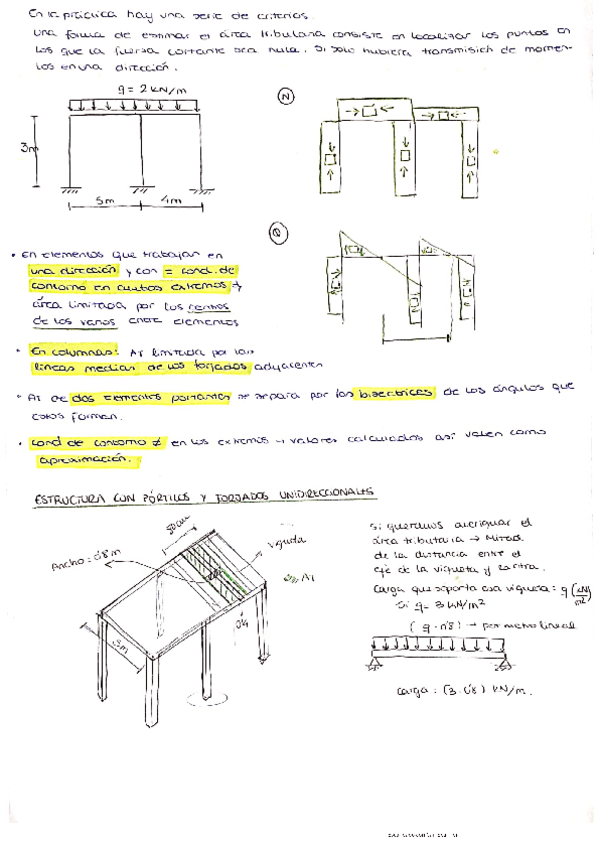 En la práctica hay una serie de criterios.
Una forma de estimar el área tributaria consiste en localizar los puntos en
los que la fuerza cortante sea nula. Si solo hubiera transmisión de momen-
tos en una dirección.
q = 2 kN/m
3m
5m
4m
N
Q
• En elementos que trabajan en
una dirección y con = cond. de
contorno en ambos extremos →
área limitada por los centros
de los vanos entre elementos
• En columnas: At limitada por las
líneas medias de los forjados adyacentes
• At de dos elementos portantes se separa por las bisectrices de los ángulos que
estos forman.
• Cond de contorno ≠ en los extremos → valores calculados así valen como
aproximación.
ESTRUCTURA CON PÓRTICOS Y FORJADOS UNIDIRECCIONALES
80cm
Ancho: 0'8m
Vigueta
AT
5m
0'4
Si queremos averiguar el
área tributaria → Mitad
de la distancia entre el
eje de la vigueta y la otra.
Carga que soporta esa vigueta: q (kN/m²)
Si q= 3 kN/m²
(q · 0'8) → por metro lineal
Carga: (3 · 0'8) kN/m.